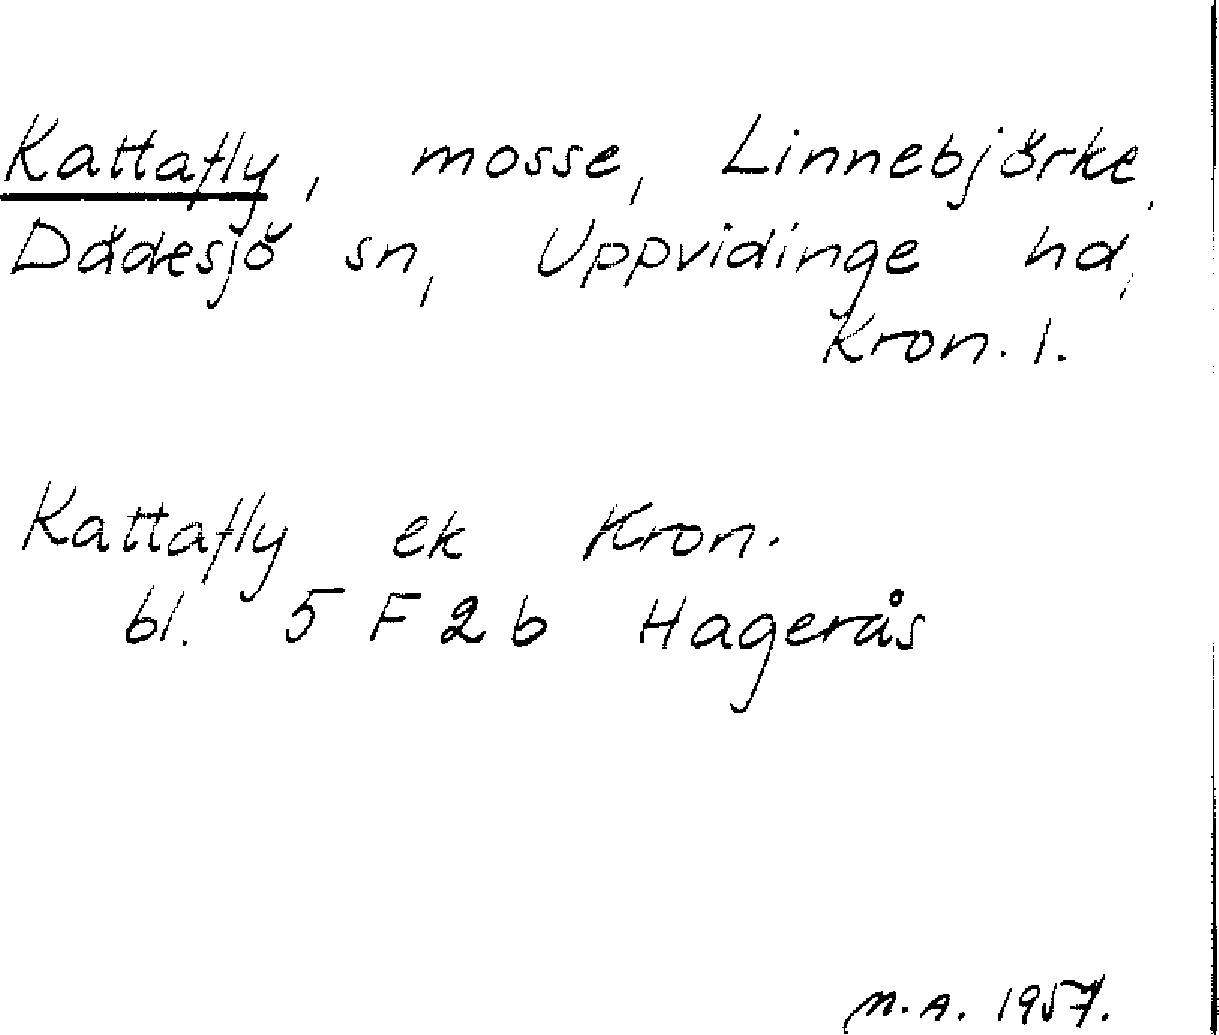 Kattafly, mosse, Linnebjörke,
Dädesjö sn, Uppvidinge hd,
Kron. l.
Kattafly ek Kron.
bl. 5 F 2 b Hagerås
M.A. 1957.